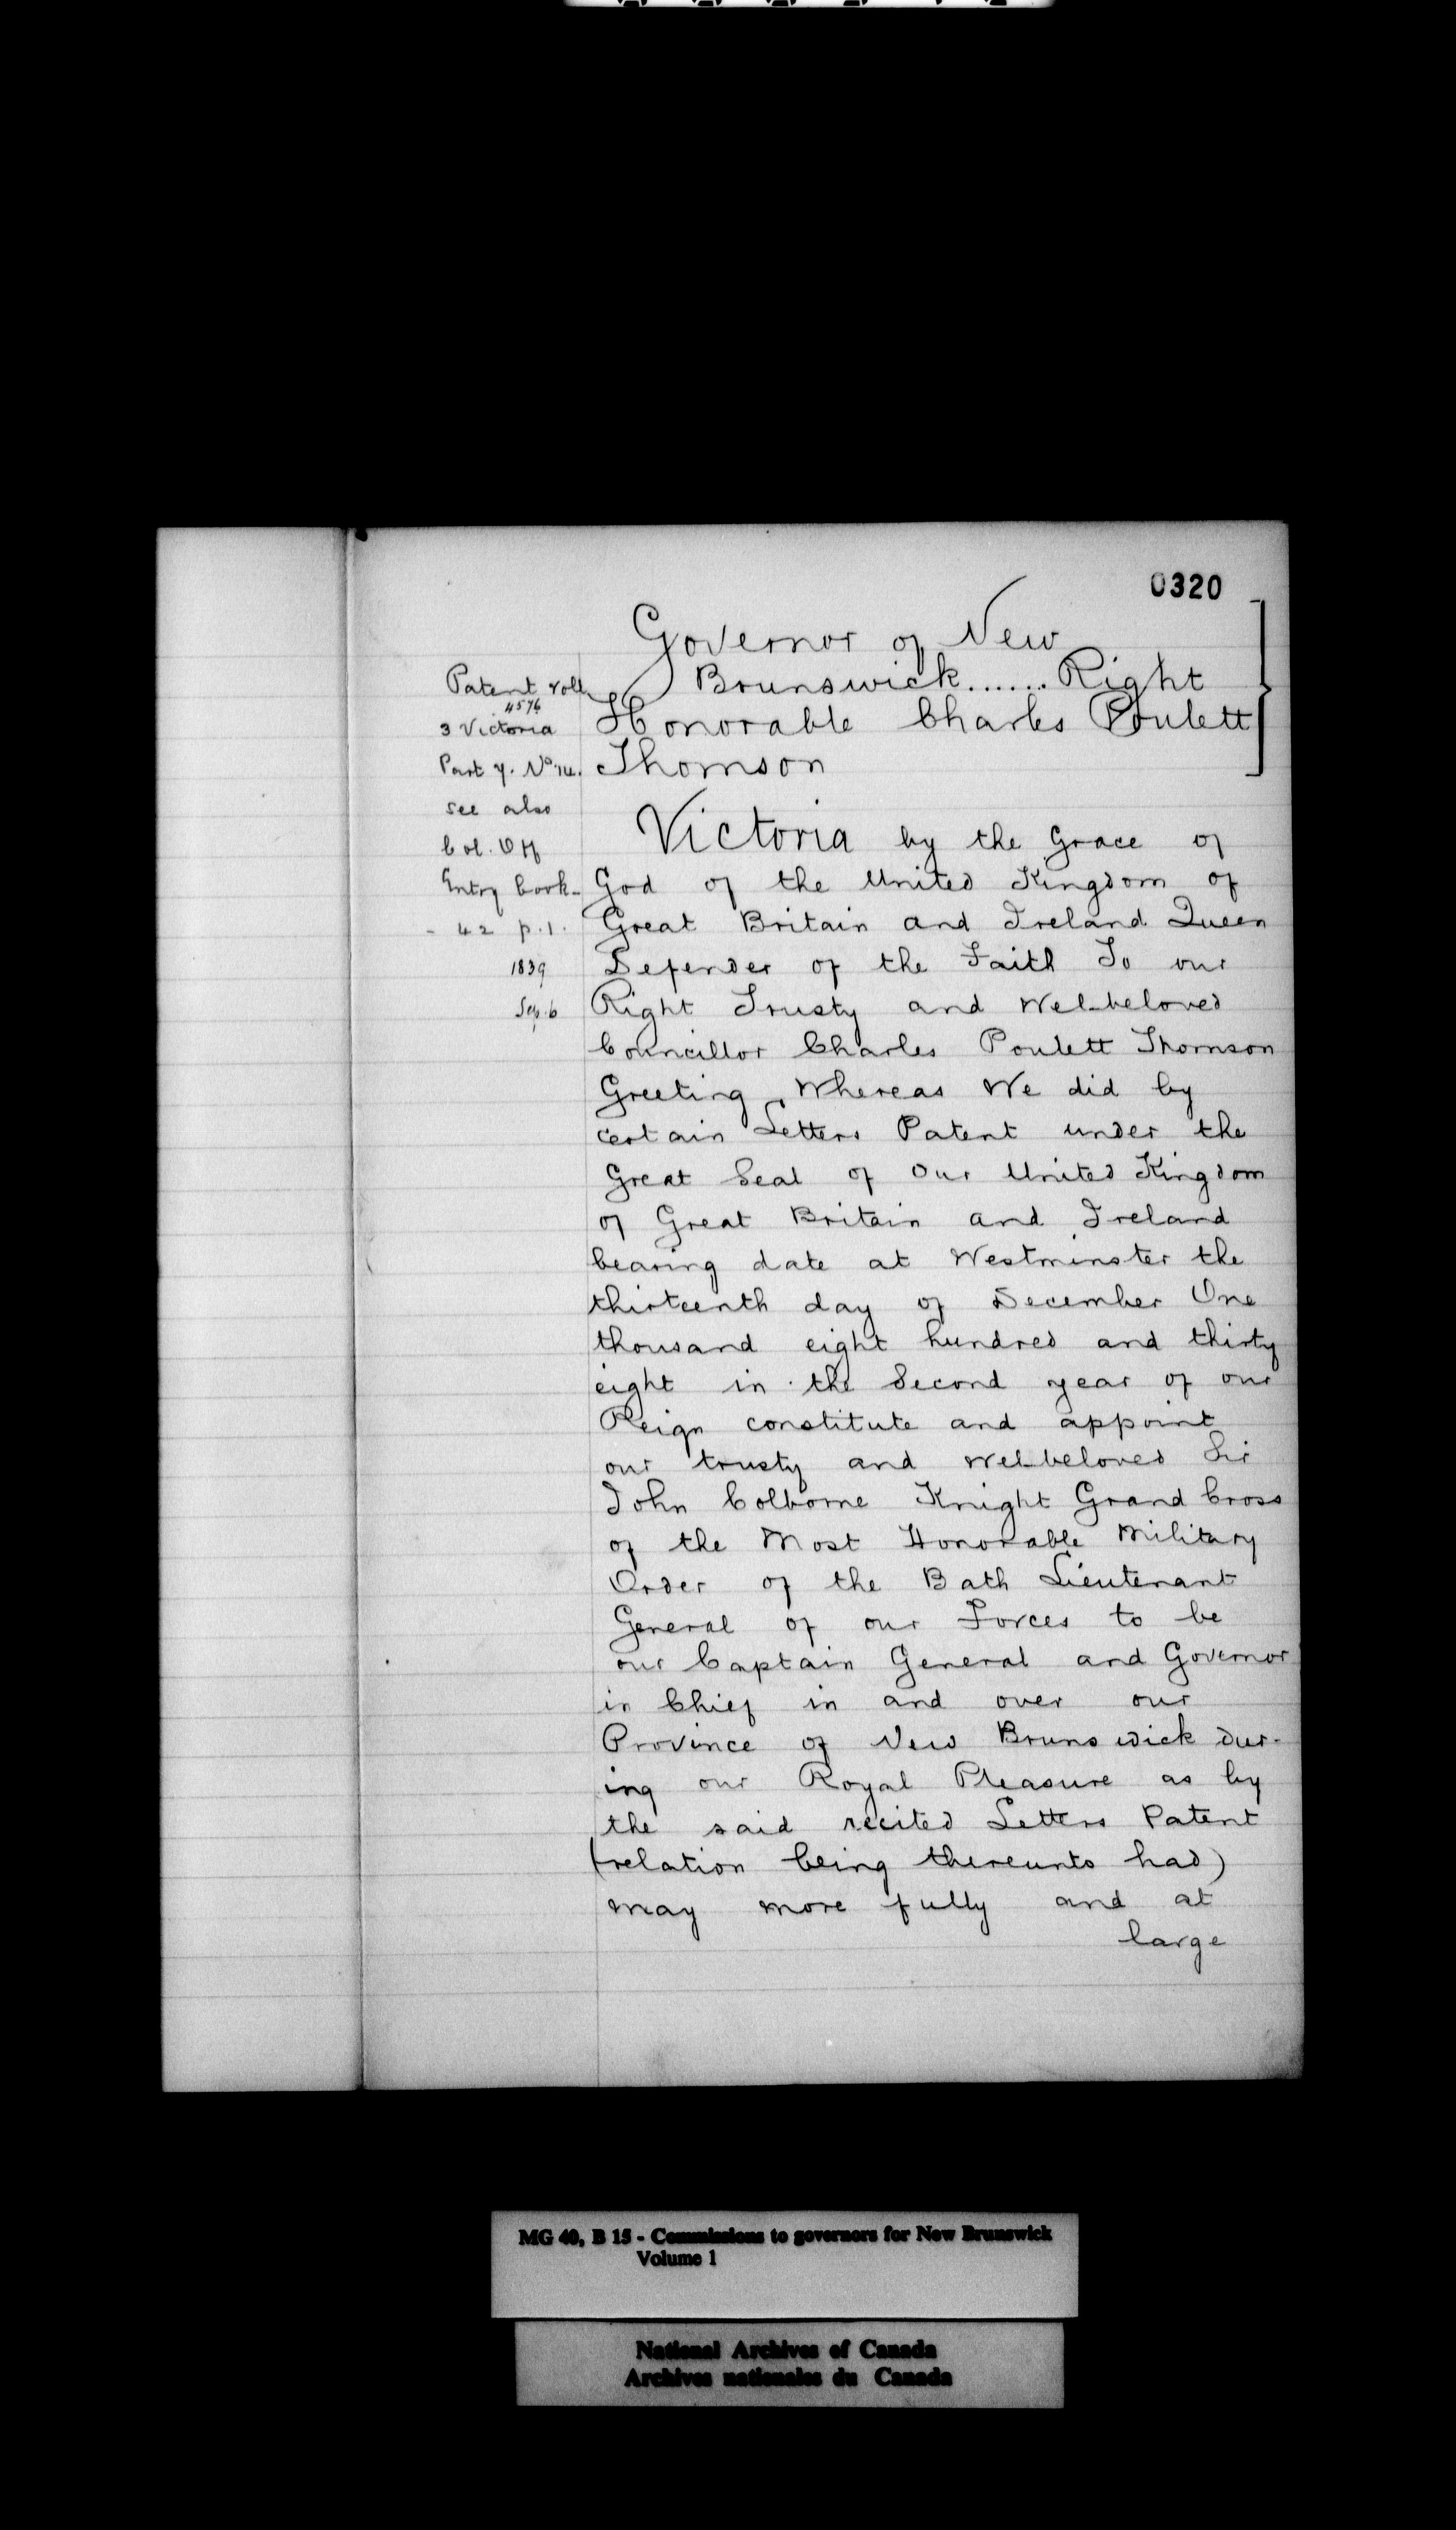 0320
Governor of New
Brunswick...... Right
Honorable Charles Poulett
Thomson
Patent roll
4576
3 Victoria
Part 7. No 14.
see also
Col. Off
Entry book-
- 42 p. 1.
1839
Sep. 6
Victoria by the Grace of
God of the United Kingdom of
Great Britain and Ireland Queen
Defender of the Faith To our
Right Trusty and Wel-beloved
Councillor Charles Poulett Thomson
Greeting, Whereas We did by
certain Letters Patent under the
Great Seal of Our United Kingdom
of Great Britain and Ireland
bearing date at Westminster the
thirteenth day of December One
thousand eight hundred and thirty
eight in the Second year of our
Reign constitute and appoint
our trusty and wel-beloved Sir
John Colborne Knight Grand Cross
of the Most Honorable Military
Order of the Bath Lieutenant
General of our Forces to be
our Captain General and Governor
in Chief in and over our
Province of New Brunswick dur-
ing our Royal Pleasure as by
the said recited Letters Patent
(relation being thereunto had)
may more fully and at
large
MG 40, B 15 - Commissions to governors for New Brunswick
Volume 1
National Archives of Canada
Archives nationales du Canada